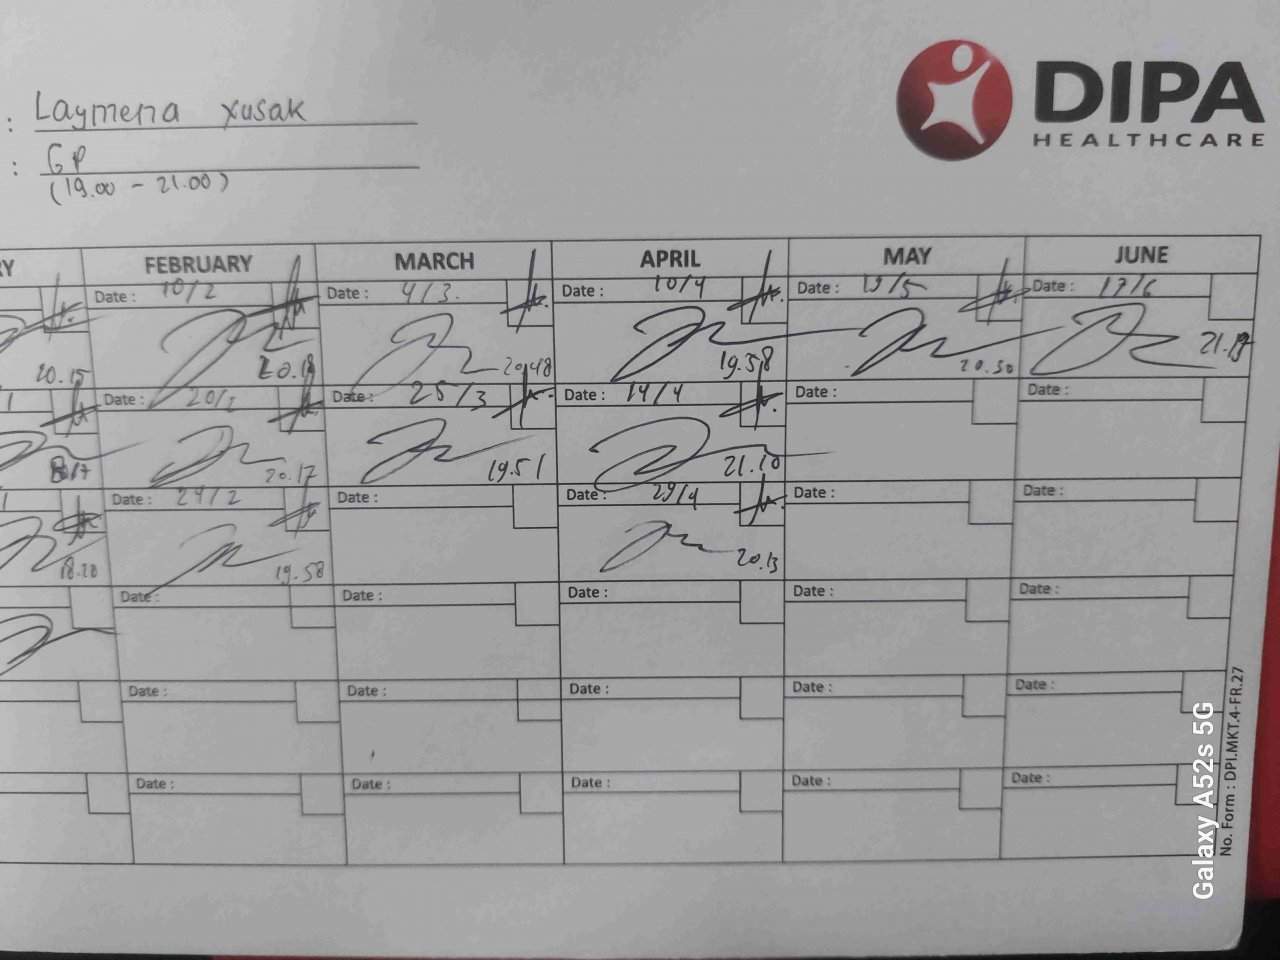 : Laymena xusak
: GP
(19.00 - 21.00)
DIPA
HEALTHCARE
RY FEBRUARY MARCH APRIL MAY JUNE
Date : 10/2 Date : 4/3. Date : 10/4 Date : 19/5 Date : 17/6
20.15 20.18 20.48 19.58 20.30 21.19
Date : 20/2 Date : 25/3 Date : 14/4 Date : Date :
20.17 19.51 21.10
Date : 24/2 Date : Date : 29/4 Date : Date :
18.20 19.58 20.13
Date : Date : Date : Date : Date :
Date : Date : Date : Date : Date :
Date : Date : Date : Date : Date :
No. Form : DPI.MKT.4-FR.27
Galaxy A52s 5G